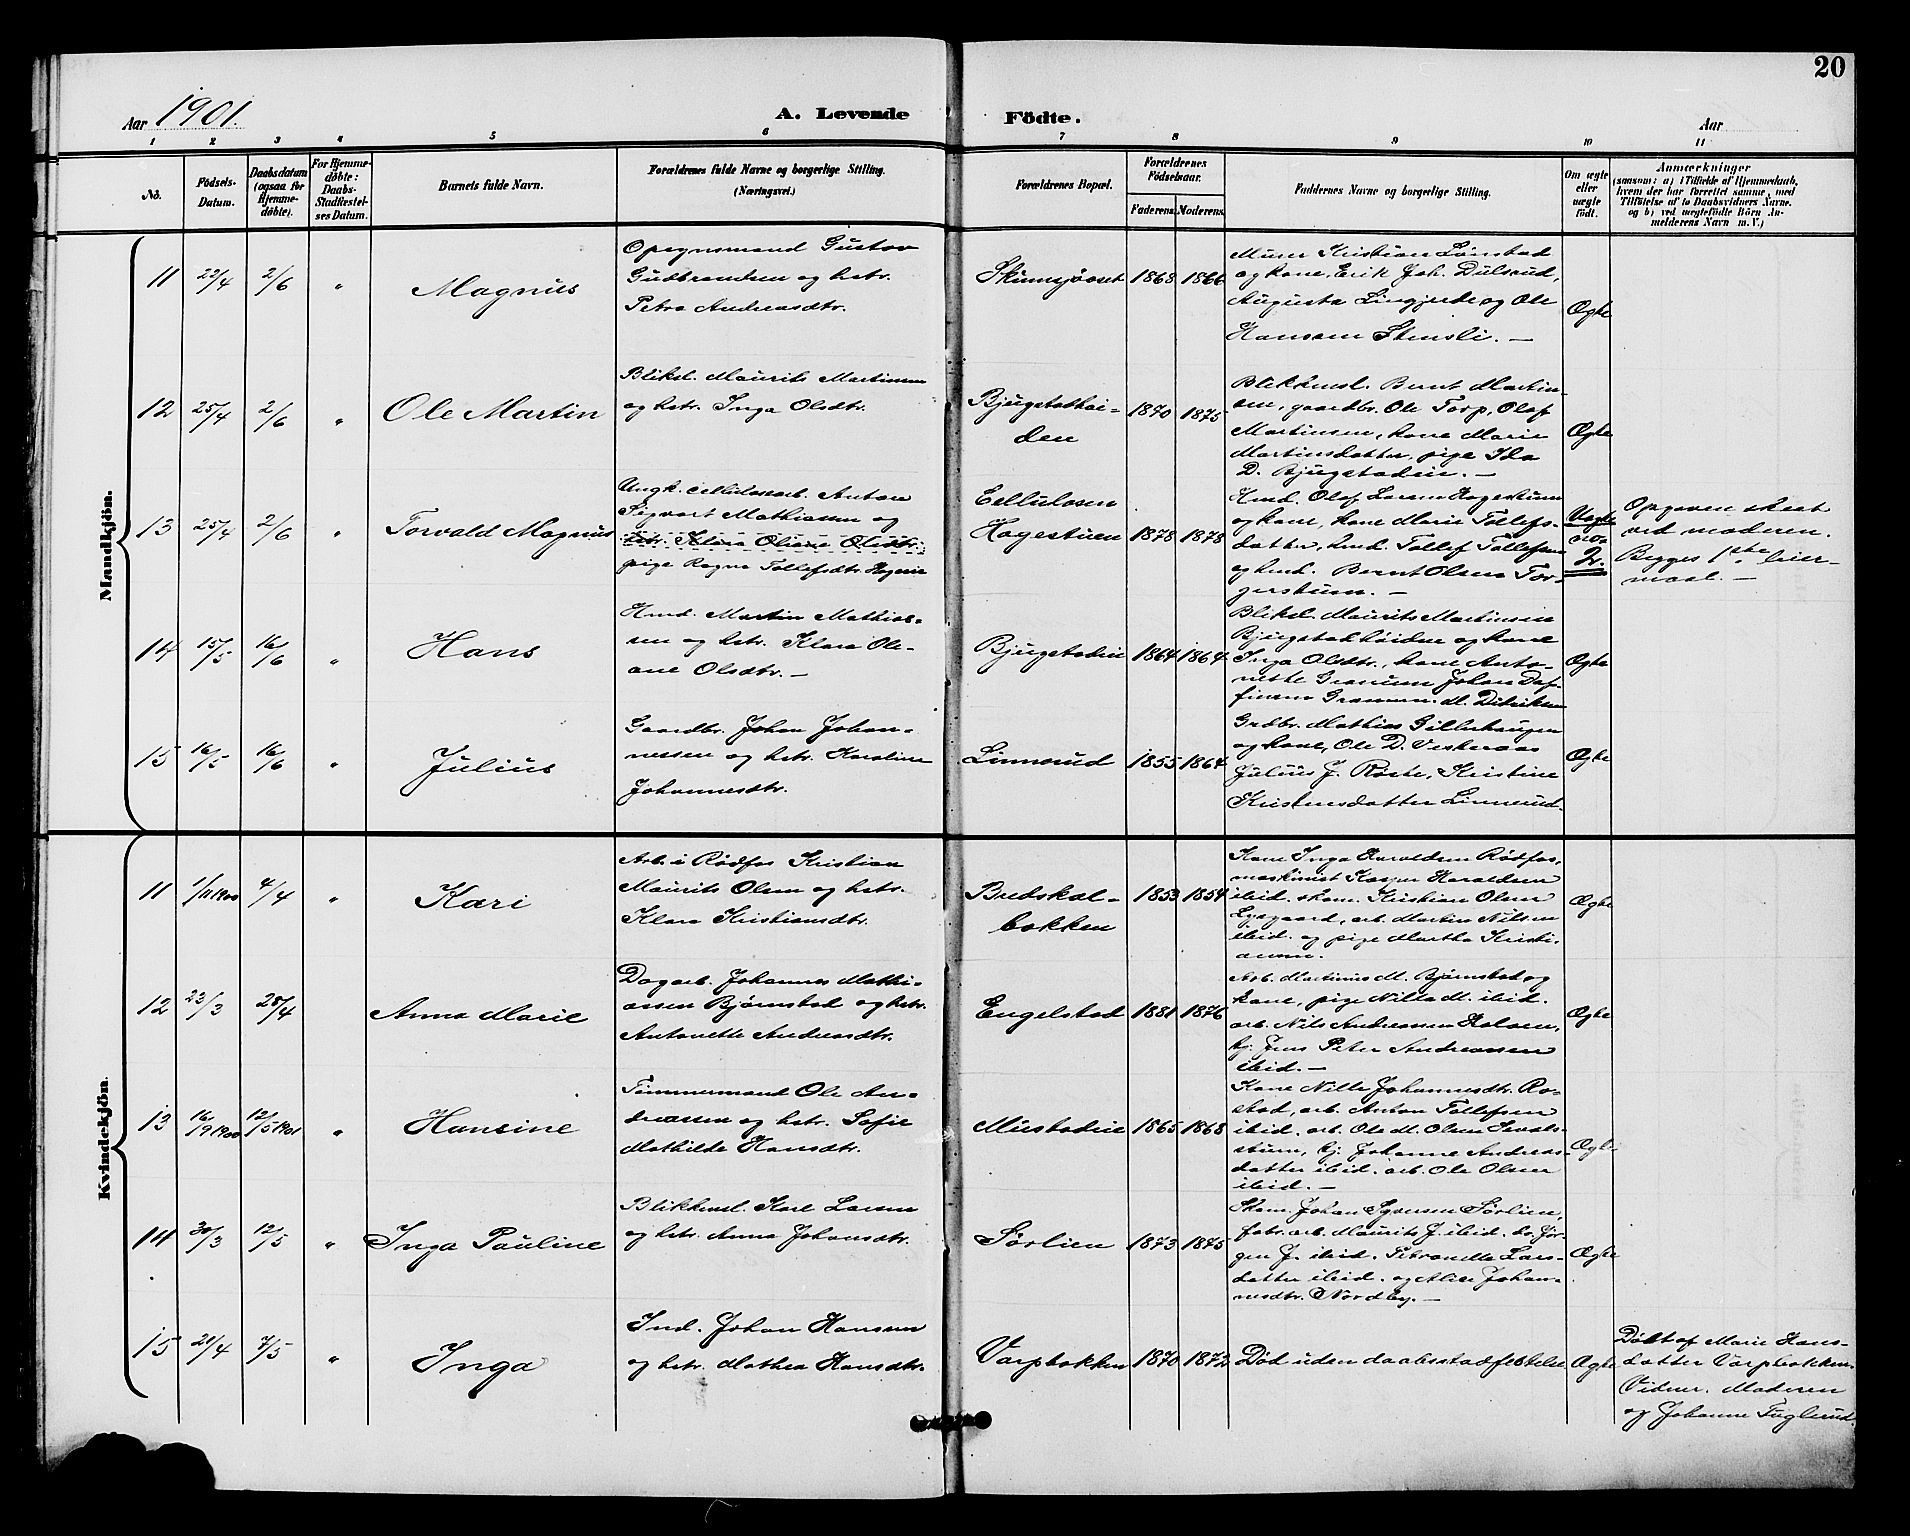 20
Aar 1901.
A. Levende
Födte.
Aar
1 2 3 4 5 6 7 8 9 10 11
No.
Födsels-
Datum.
Daabsdatum
(ogsaa for
Hjemme-
döbte).
For Hjemme-
döbte:
Daabs-
Stadfæstel-
ses Datum.
Barnets fulde Navn.
Forældrenes fulde Navne og borgerlige Stilling.
(Næringsvei.)
Forældrenes Bopæl.
Forældrenes
Födselsaar.
Faderens. Moderens.
Faddernes Navne og borgerlige Stilling.
Om ægte
eller
uægte
födt.
Anmærkninger
(saasom: a) i Tilfælde af Hjemmedaab,
hvem der har forrettet samme, med
Tilföielse af to Daabsvidners Navne.
og b) ved uægtefödte Börn An-
melderens Navn m. V.)
Mandkjön.
11 22/4 2/6 " Magnus
Gustav
Gudbrandsen og hstr.
Petra Andreasdtr.
1868 1866
Murer Kristian Lönstad
og kone, Erik Joh. Dulsrud,
Augusta og Ole
Hansen Stensli. —
Ægte
12 25/4 2/6 " Ole Martin
Bliksl. Maurits Martinsen
og hstr. Inga Olsdtr.
Bjugstadhei-
den
1870 1875
Blikkensl. Bernt Martin-
sen, gaardbr. Ole Torp, Olaf
Martinsen, kone Marie
Martinsdatter, pige Ida
D. Bjugstadeie. —
Ægte
13 25/4 2/6 " Torvald Magnus
Ungk. cellulosearb. Anton
Sigvart Mathiassen og
hstr. Klara Oliane Olsdtr.
pige Ragna Tollefsdtr.
Cellulosen
Hagestuen
1878 1878
Hmd. Olaf Larsen Hagestuen
og kone, kone Marie Tollefs-
datter, hmd. Tollef Tollefsen
og hmd. Bernt Olsen Tor-
gerstuen. —
Uægte
no.
2.
Opgaven skeet
ved moderen.
Begges 1ste leier-
maal. —
14 15/5 16/6 " Hans
Hmd. Martin Mathias-
sen og hstr. Klara Ole-
ane Olsdtr. —
Bjugstadeie 1864 1864
Bliksl. Maurits Martinsen
Bjugstadhöiden og kone
Inga Olsdtr., kone Anto-
nette Granum Johan Daf-
finsen Granum. M. Didriksen
Ægte
15 16/5 16/6 " Julius
Gaardbr. Johan Johan-
nessen og hstr. Karoline
Johannesdtr.
Linnerud 1855 1864
Grdbr. Mathias Gillerhaugen
og kone, Ole D. Vesteraas
Julius J. Røste, Kristine
Kristensdatter Linnerud.
Ægte
Kvindekjön.
11 1/11 1900 4/4 " Kari
Arb. i Rødfos Kristian
Maurits Olsen og hstr.
Klara Kristiansdtr.
Bredskal-
bakken
1853 1854
Kone Inga Haraldsen Rødfos,
maskinist Kasper Haraldsen
ibid. skom. Kristian Olsen
Lysgaard, arb. Martin Nilsen
ibid. og pige Martha Kristi-
ansen.
Ægte
12 23/3 28/4 Anna Marie
Dagarb. Johannes Mathi-
assen Bjørnstad og hstr.
Antonette Andreasdtr.
Engelstad 1881 1876
Arb. Martinius M. Bjørnstad og
kone, pige Nilla M. ibid.
arb. Nils Andreassen Kolsen,
tj. Jens Peter Andreassen
ibid. —
Ægte
13 16/9 1900 12/5 1901 " Hansine
Tømmermand Ole An-
dreassen og hstr. Sofie
Mathilde Hansdtr.
Mustadeie 1865 1868
Kone Nilla Johannesdtr. Ro-
stad, arb. Anton Tollefsen
ibid. arb. Ole M. Olsen
stuen, tj. Johanne Andreas-
datter ibid. arb. Ole Olsen
ibid. —
Ægte
14 30/3 12/5 " Inga Pauline
Blikkensl. Karl Larsen
og hstr. Anna Johansdtr.
Sørlien 1873 1875
Skom. Johan Syversen Sørlien,
fabr. arb. Maurits J. ibid. do. Jør-
gen J. ibid. Petronelle Lars-
datter ibid. og Alice Johan-
nesdtr. Nordby. —
Ægte
15 21/4 7/5 " Inga
Ind. Johan Hansen
og hstr. Mathea Hansdtr.
Varpbakken 1870 1872
Død uden daabsstadfestelse
Ægte
Døbt af Marie Hans-
datter Varpbakken.
Vidner. Moderen
og Johanne Fuglerud.